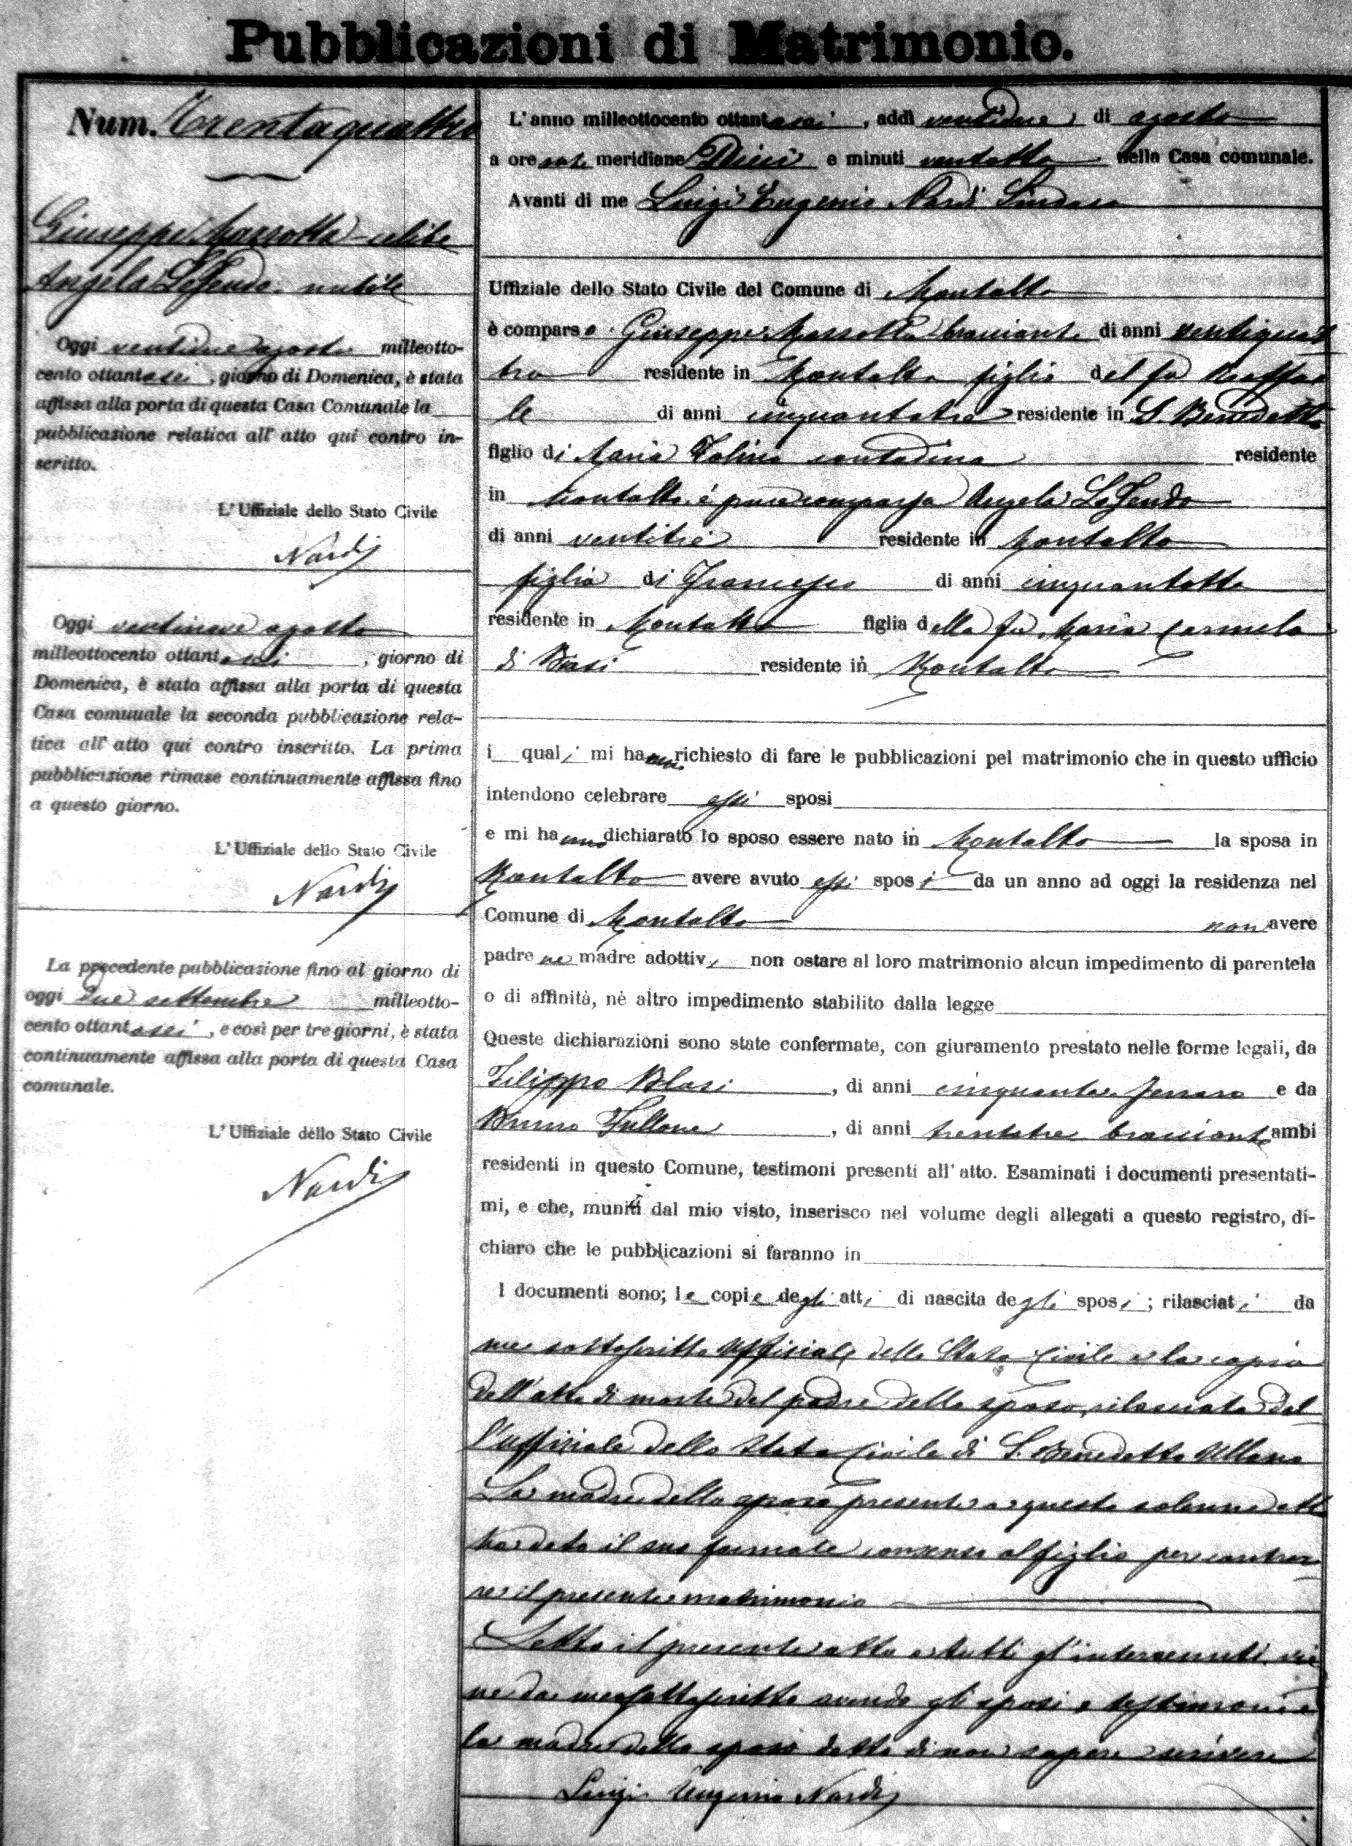 Pubblicazioni di Matrimonio.
Num. Trentaquattro
Giuseppe Mazzotta celibe
Angela LoFendo nubile
Oggi ventidue agosto milleotto-
cento ottantasei, giorno di Domenica, è stata
affissa alla porta di questa Casa Comunale la
pubblicazione relativa all' atto qui contro in-
scritto.
L' Uffiziale dello Stato Civile
Nardi
Oggi ventinove agosto
milleottocento ottantasei, giorno di
Domenica, è stata affissa alla porta di questa
Casa comunale la seconda pubblicazione rela-
tiva all' atto qui contro inscritto. La prima
pubblicazione rimase continuamente affissa fino
a questo giorno.
L' Uffiziale dello Stato Civile
Nardi
La precedente pubblicazione fino al giorno di
oggi due settembre milleotto-
cento ottantasei, e così per tre giorni, è stata
continuamente affissa alla porta di questa Casa
comunale.
L' Uffiziale dello Stato Civile
Nardi
L' anno milleottocento ottantasei, addì ventidue di agosto
a ore anti meridiane Dieci e minuti ventotto nella Casa comunale.
Avanti di me Luigi Eugenio Nardi Sindaco
Uffiziale dello Stato Civile del Comune di Montalto
è comparso Giuseppe Mazzotta bracciante di anni ventiquat
tro residente in Montalto figlio del fu Raffae
le di anni cinquantatre residente in S. Benedetto
figlio di Maria contadina residente
in Montalto è pure comparsa Angela LoFendo
di anni ventitrè residente in Montalto
figlia di Francesco di anni cinquantotto
residente in Montalto figlia della fu Maria Carmela
di Biasi residente in Montalto
i quali mi hanno richiesto di fare le pubblicazioni pel matrimonio che in questo ufficio
intendono celebrare essi sposi
e mi hanno dichiarato lo sposo essere nato in Montalto la sposa in
Montalto avere avuto essi sposi da un anno ad oggi la residenza nel
Comune di Montalto non avere
padre ne madre adottivi non ostare al loro matrimonio alcun impedimento di parentela
o di affinità, nè altro impedimento stabilito dalla legge
Queste dichiarazioni sono state confermate, con giuramento prestato nelle forme legali, da
Filippo Blasi, di anni cinquanta ferraro e da
Bruno Fullone, di anni trentatre bracciante ambi
residenti in questo Comune, testimoni presenti all' atto. Esaminati i documenti presentati-
mi, e che, muniti dal mio visto, inserisco nel volume degli allegati a questo registro, di-
chiaro che le pubblicazioni si faranno in
I documenti sono; le copie degli atti di nascita degli sposi; rilasciati da
me sottoscritto Uffiziale dello Stato Civile e la copia
dell'atto di morte del padre dello sposo, rilasciata dal
l'uffiziale dello Stato Civile di S. Benedetto Ullano
La madre dello sposo presente a questo solenne att
ha dato il suo formale consenso al figlio per contrar
re il presente matrimonio
Letto il presente atto a tutti gl'intervenuti vie
ne da me sottoscritto avendo gli sposi e testimoni e
la madre dello sposo detto di non sapere scrivere
Luigi Eugenio Nardi